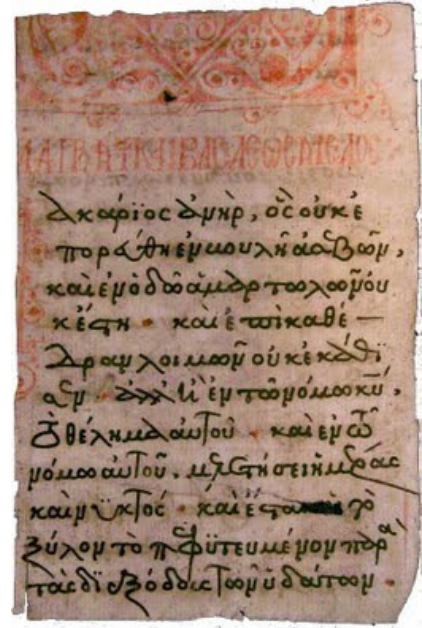 ΚΑΙ ΒΑΣΙΛΕΩΣ ΜΕΛΟΣ
ακάριος ἀνὴρ, ὃς οὐκ ἐ
πορεύθη ἐν βουλῆ ἀσεβῶν,
καὶ ἐν ὁδῶ ἁμαρτωλῶν οὐ
κ ἔστη · καὶ ἐπὶ καθέ—
δραν λοιμῶν οὐκ ἐκάθϊ
σεν · ἀλλ' ἢ ἐν τῶ νόμω κυ,
τὸ θέλημα αὐτοῦ · καὶ ἐν τῶ
νόμω αὐτοῦ. μελετήσει ἡμέρας
καὶ νϋκτός · καὶ ἔσται τὸ
ξύλον τὸ πεφϋτευμένον παρὰ
τὰς δϊεξόδους τῶν ὑδάτων ·